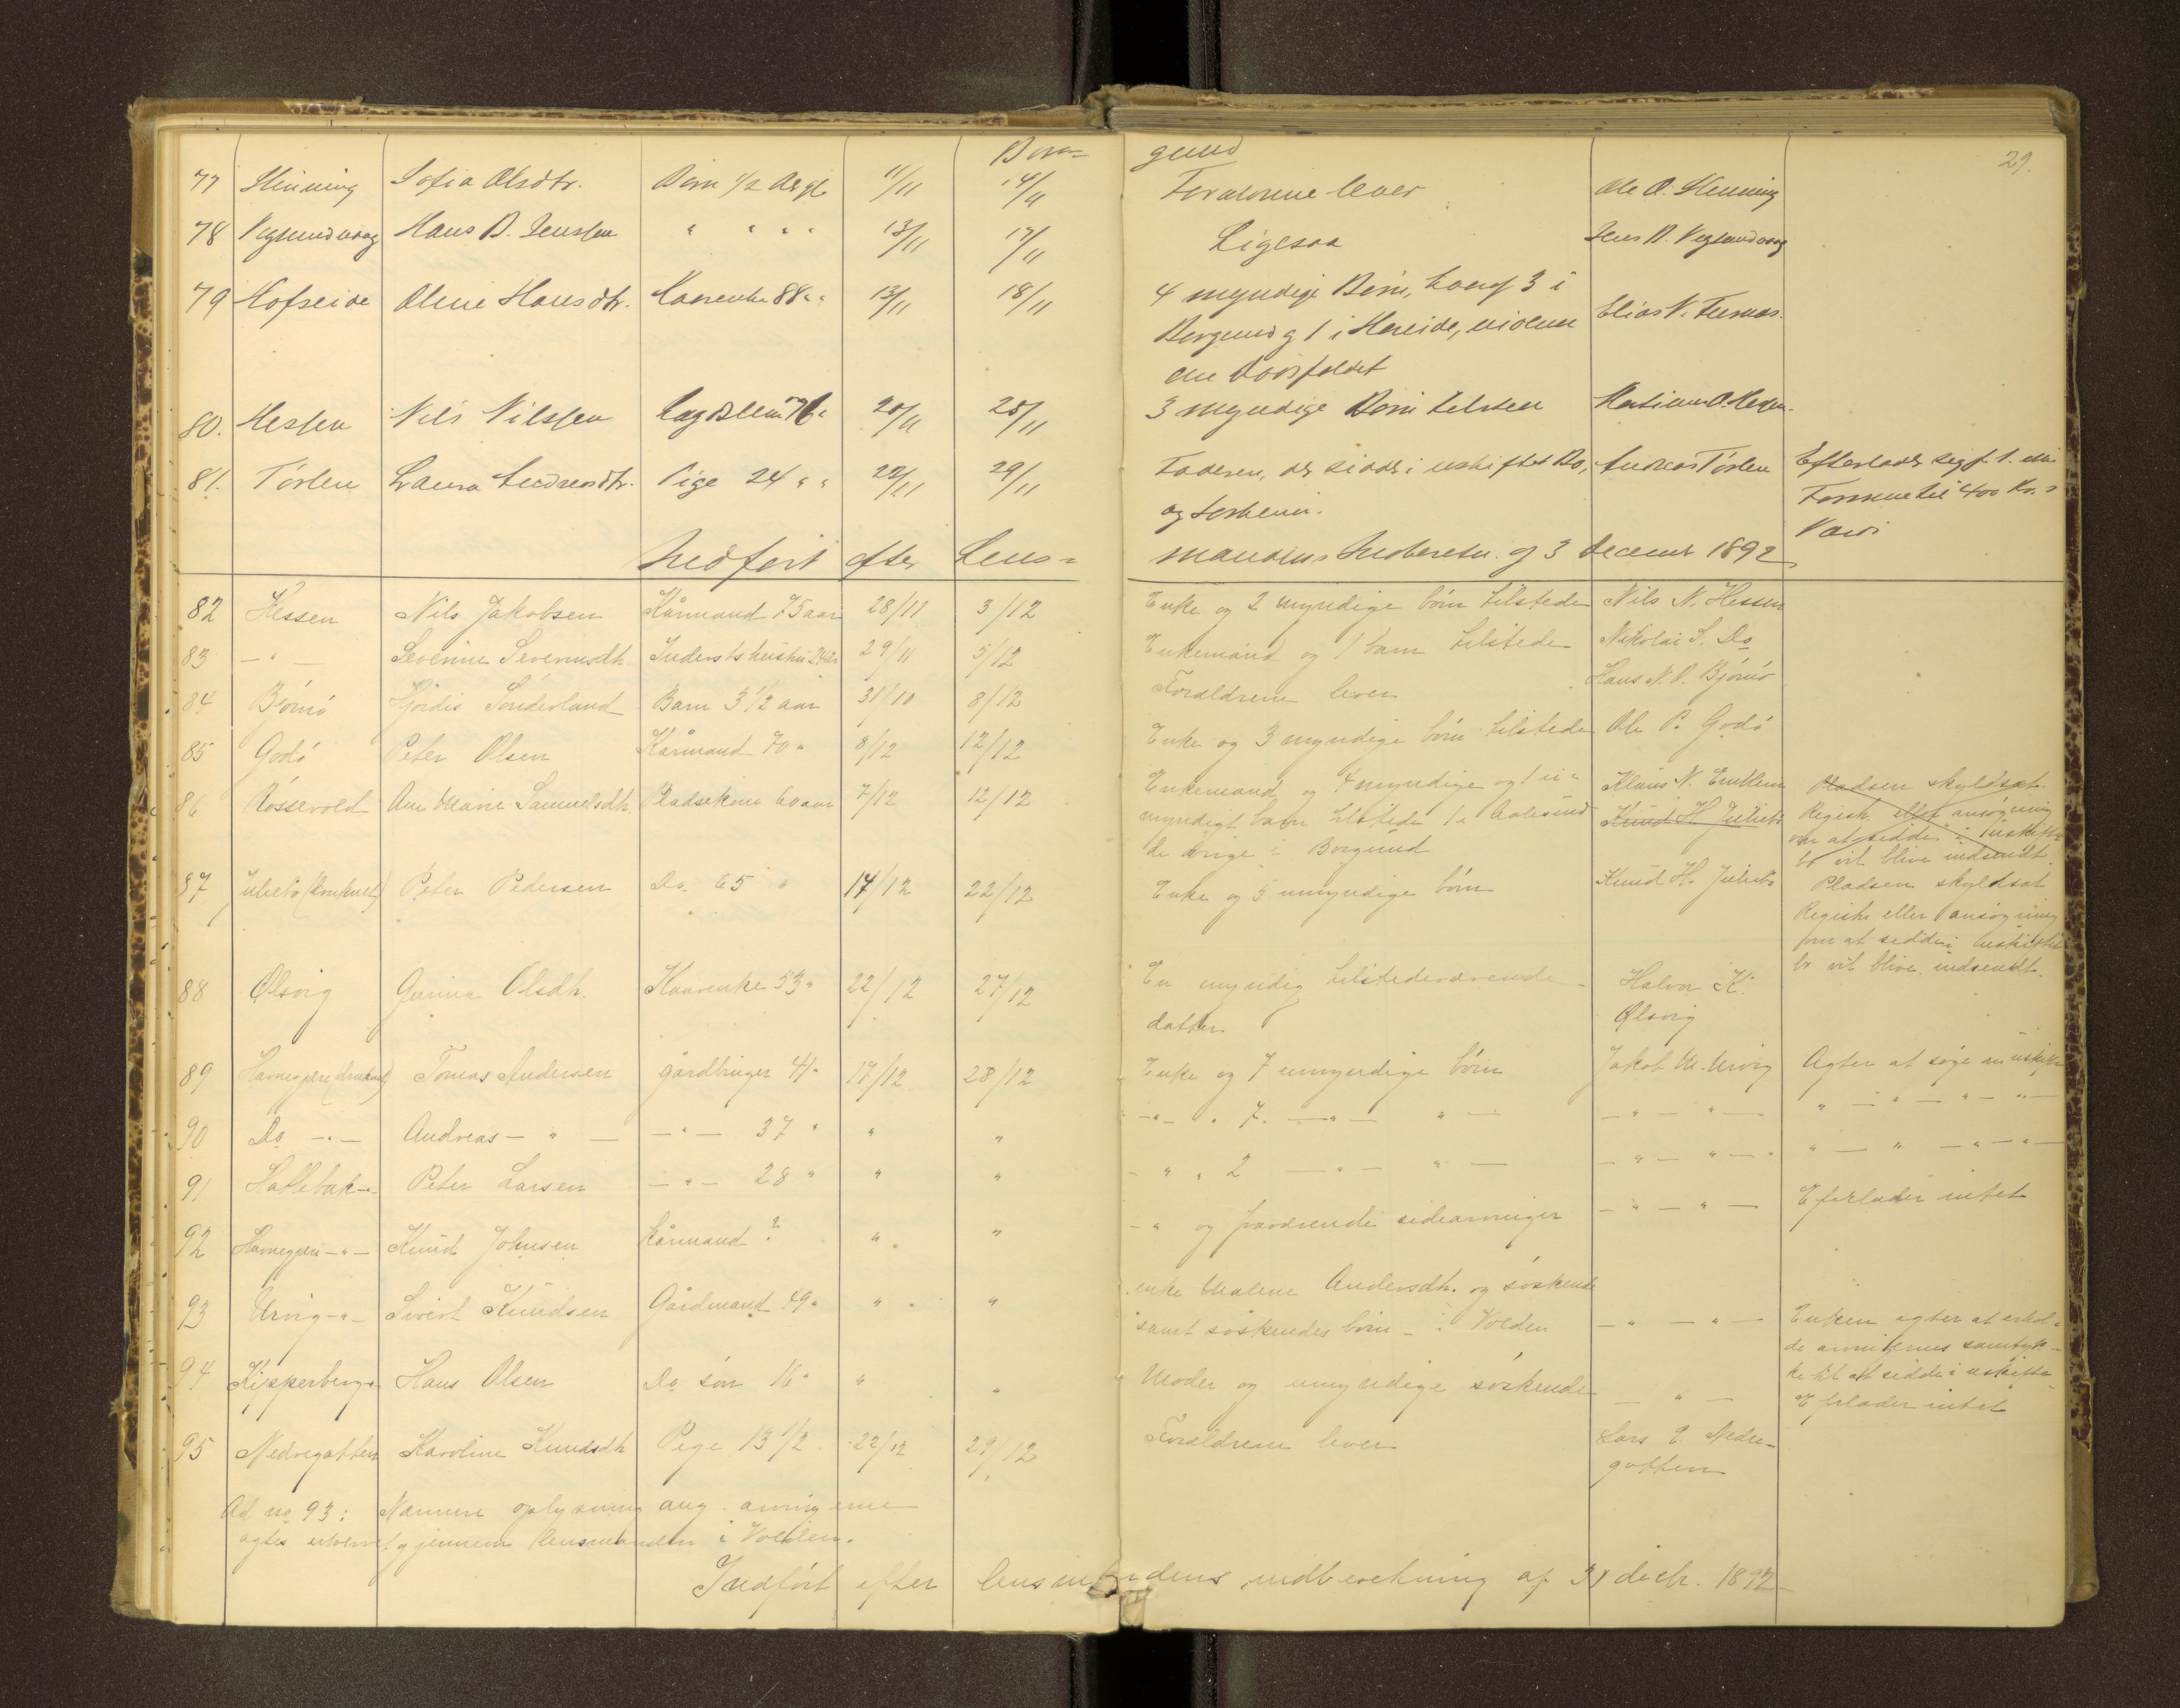 Bor-
gund
29.
77 Slinning Sofia Olsdtr. Barn 1/2 Aar gl. 11/11 14/11 Forældrene lever Ole O. Slinning
78 Vegsundvaag Hans B. Jenssen " " " " 13/11 17/11 Ligesaa Jens B. Vegsundvaag
79 Hofseide Oline Hansdtr. Kaarenke 88 " " 13/11 18/11 4 myndige Børn, hvoraf 3 i Elias N.
Borgund og 1 i Hareide,
80. Hessen Nils Nilssen 76 " 20/11 25/11 3 myndige Børn tilstede
81. Tørlen Laura Andreasdtr. Pige 24 " " 22/11 29/11 Faderen, der sidder i uskiftet Bo, Andreas Tørlen Efterlader sig
og Søskende. Formue til 400 Kr.s
Værdi
Indført efter Lens-
mandens Indberetn. af 3 december 1892
82 Hessen Nils Jakobsen Kårmand 75 aar 28/11 3/12 Enke og 2 myndige børn tilstede Nils N. Hessen
83 - " - Severine Severinsdtr. Inderstshustru 24 aar 29/11 5/12 Enkemand og 1 barn tilstede Nikolai S. Do
84 Bjørnø Hjørdis Sønderland Barn 3 1/2 aar 31/10 8/12 Forældrene lever Hans N. P. Bjørnø
85 Godø Peter Olsen Kårmand 70 " 8/12 12/12 Enke og 3 myndige børn tilstede Ole P. Godø
86 Røssevold Ane Marie Samuelsdtr. Pladsekone 60 aar 7/12 12/12 Enkemand og 4 myndige og 1 u- Klaus N. Emblem Pladsen skyldsat.
myndigt barn tilstede 1 i Aalesund Knud H. Juliebø Registr. eller ansøgning
de øvrige i Borgund om at sidde i uskiftet
bo vil blive indsendt.
87 Juliebø (druknet) Peter Pedersen Do. 65 " 14/12 22/12 Enke og 5 umyndige børn Knud H. Juliebø Pladsen skyldsat
Registr eller ansøgning
om at sidde i uskiftet
bo vil blive indsendt.
88 Ølsvig Gunna Olsdtr. Kaarenke 53 " 22/12 27/12 En myndig tilstedeværende Halvor K.
datter Ølsvig
89 Havnegjere (druknet) Tomas Andersen gårdbruger 41 " 17/12 28/12 Enke og 7 umyndige børn Jakob M. Urvig Agter at søge om uskifte
90 Do - " - Andreas - " - - " - 37 " " " - " - " 7. - " - " - - " - " - " - " - " - " -
91 Hallebak - " - Peter Larsen - " - 28 " " " - " " 2 - " - " - - " - " - " " - " - " - " -
92 Havnegjere - " - Knud Johnsen Kårmand ? " " - " og fraværende sidearvinger - " - " - Eferlader intet
93 Urvig - " - Sivert Knudsen Gårdmand 49 " " " enke Malene Andersdtr. og søskende
samt søskendes børn - i Volden - " - " - Enken agter at erhol-
de arvingernes samtyk-
ke til at sidde i uskifte
94 Kipperberg - " Hans Olsen Do søn 16 " " " Moder og umyndige søskende - " - Eferlader intet
95 Nedregotten Karoline Knudsdtr Pige 13 1/2 22/12 29/12 Forældrene lever Lars E. Nedre-
gotten
Ad no 93: Nærmere oplysning ang. arvingerne
agtes erhvervet gjennem lensmanden i Volden.
Indført efter lensmandens indberetning af 31 decbr. 1892